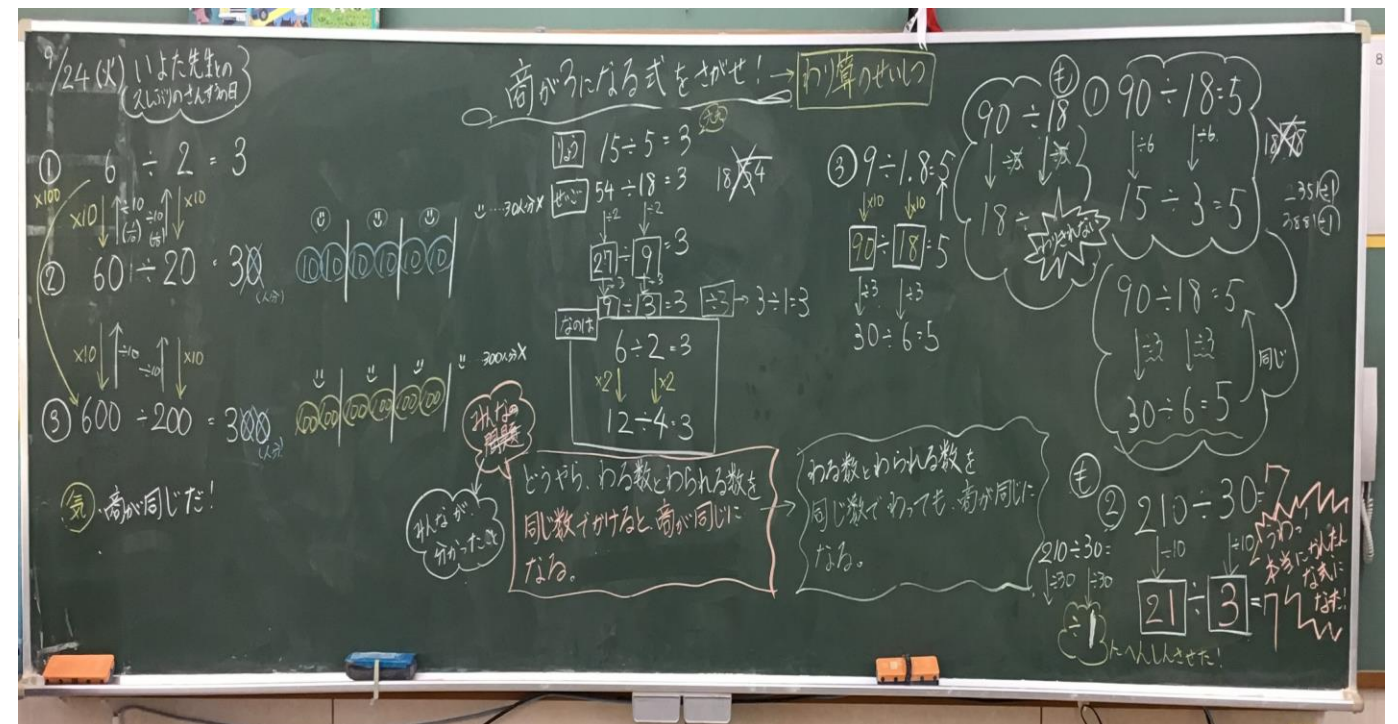 9/24(火)
いよた先生との
久しぶりのさんすうの日
① 6 ÷ 2 = 3
×100
×10 ÷10 ÷10 ×10
② 60 ÷ 20 = 30
(人分)
10 10 10 10 10 10
…30人分×
×10 ÷10 ÷10 ×10
③ 600 ÷ 200 = 300
(人分)
100 100 100 100 100 100
…300人分×
気 商が同じだ!
商が3になる式をさがせ!→わり算のせいしつ
りょう 15÷5=3
せいご 54÷18=3
18 54
÷2 ÷2
27÷9=3
÷3 ÷3
9÷3=3 ÷3→3÷1=3
なのは
6÷2=3
×2 ×2
12÷4=3
みんなの
問題
みんなが
分かったこと
どうやら、わる数とわられる数を
同じ数でかけると、商が同じに
なる。
わる数とわられる数を
同じ数でわっても、商が同じに
なる。
③ 9÷1.8=5
×10 ×10
90÷18=5
÷3 ÷3
30÷6=5
も
90÷18
÷5 ÷5
18÷
わりきれない
① 90÷18=5
÷6 ÷6
15÷3=5
90÷18=5
÷3 ÷3
30÷6=5
同じ
も
② 210÷30=7
÷10 ÷10
21÷3=7
うわっ、
本当にかんたん
な式に
なった!
210÷30=
÷30 ÷30
÷1
にへんしんさせた!
8